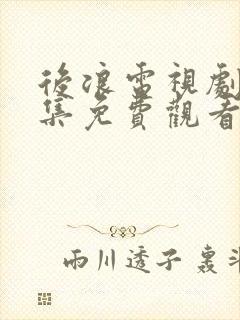 後浪電視劇
集免費觀看
雨川透子 轰